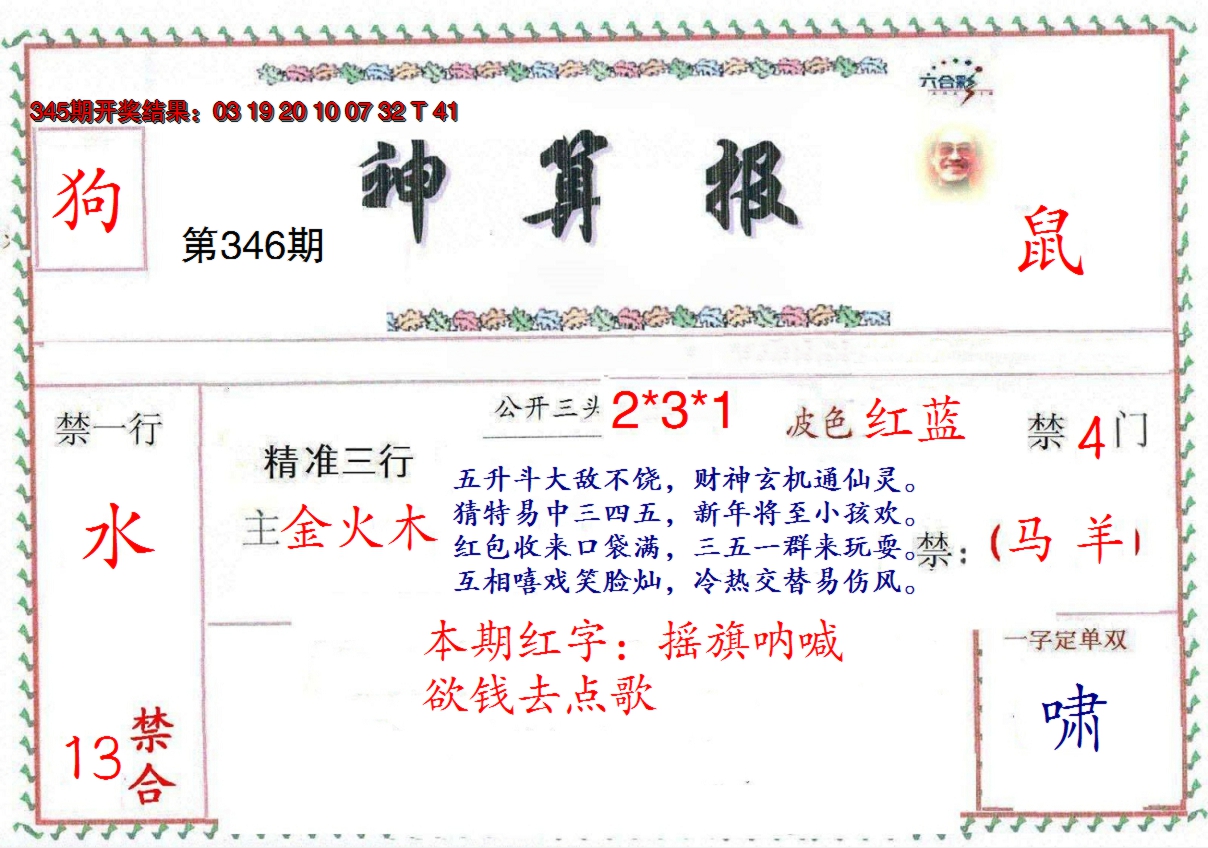 六合彩
345期开奖结果：03 19 20 10 07 32 T 41
狗
神算报
第346期
鼠
禁一行
水
13
禁合
精准三行
主金火木
公开三头 2*3*1
波色 红蓝
禁 4 门
五升斗大敌不饶，财神玄机通仙灵。
猜特易中三四五，新年将至小孩欢。
红包收来口袋满，三五一群来玩耍。
互相嘻戏笑脸灿，冷热交替易伤风。
禁：（马 羊）
本期红字：摇旗呐喊
欲钱去点歌
一字定单双
啸